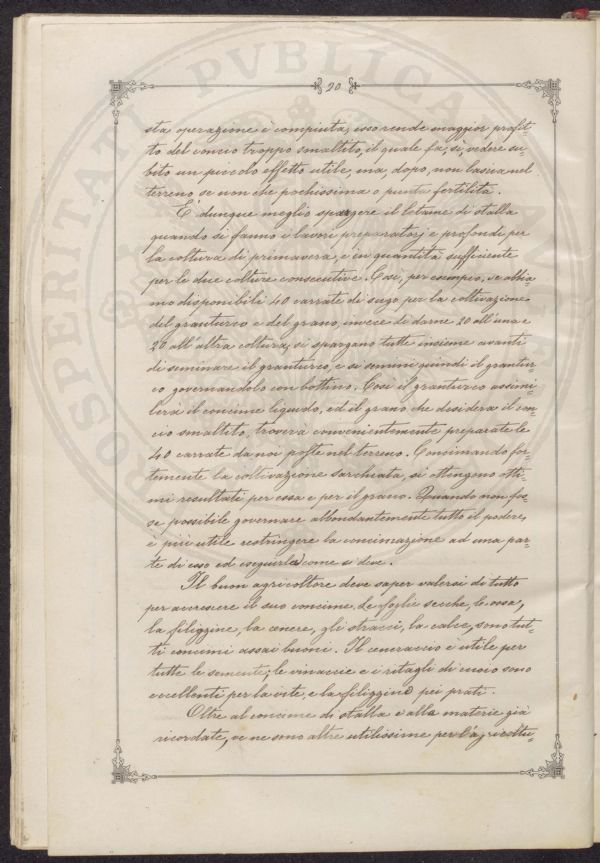 20
sta operazione è compiuta, esso rende maggior profit-
to del concio troppo smaltito, il quale fa, sì, vedere su-
bito un piccolo effetto utile, ma, dopo, non lascia nel
terreno se non che pochissima o punta fertilità.
È dunque meglio spargere il letame di stalla
quando si fanno i lavori preparatorj e profondi per
la coltura di primavera, e in quantità sufficiente
per le due colture consecutive. Così, per esempio, se abbia-
mo disponibili 40 carrate di sugo per la coltivazione
del granturco e del grano, invece di darne 20 all'una e
20 all'altra coltura, si spargano tutte insieme avanti
di seminare il granturco, e si semini quindi il grantur-
co governandolo con bottino. Così il granturco assimi-
lerà il concime liquido, ed il grano, che desidera il con-
cio smaltito, troverà convenientemente preparate le
40 carrate da noi poste nel terreno. Concimando for-
temente la coltivazione sarchiata, si ottengono otti-
mi resultati per essa e per il grano. Quando non fos-
se possibile governare abbondantemente tutto il podere,
è più utile restringere la concimazione ad una par-
te di esso ed eseguirla come si deve.
Il buon agricoltore deve saper valersi di tutto
per accrescere il suo concime. Le foglie secche, le ossa,
la filiggine, la cenere, gli stracci, la calce, sono tut-
ti concimi assai buoni. Il ceneraccio è utile per
tutte le semente; le vinaccie e i ritagli di cuoio sono
eccellenti per la vite, e la filiggine pei prati.
Oltre al concime di stalla e alle materie già
ricordate, ve ne sono altre utilissime per l'agricoltu-
PROSPERITATI PVBLICAE